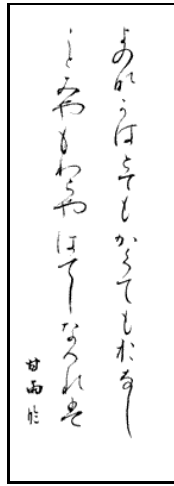 よのなかはとてもかくてもおなし
ことみやもわらやはてしなけれは
甘雨臨